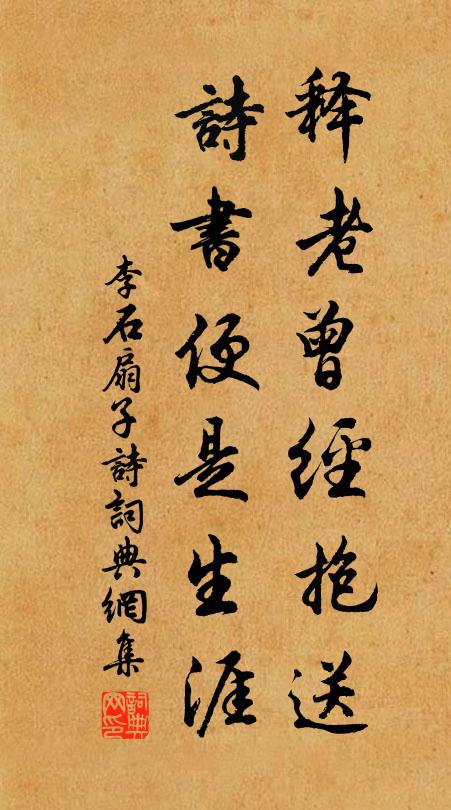 释老曾經抱送
詩書便是生涯
李石扇子詩詞典網集
詞典網印